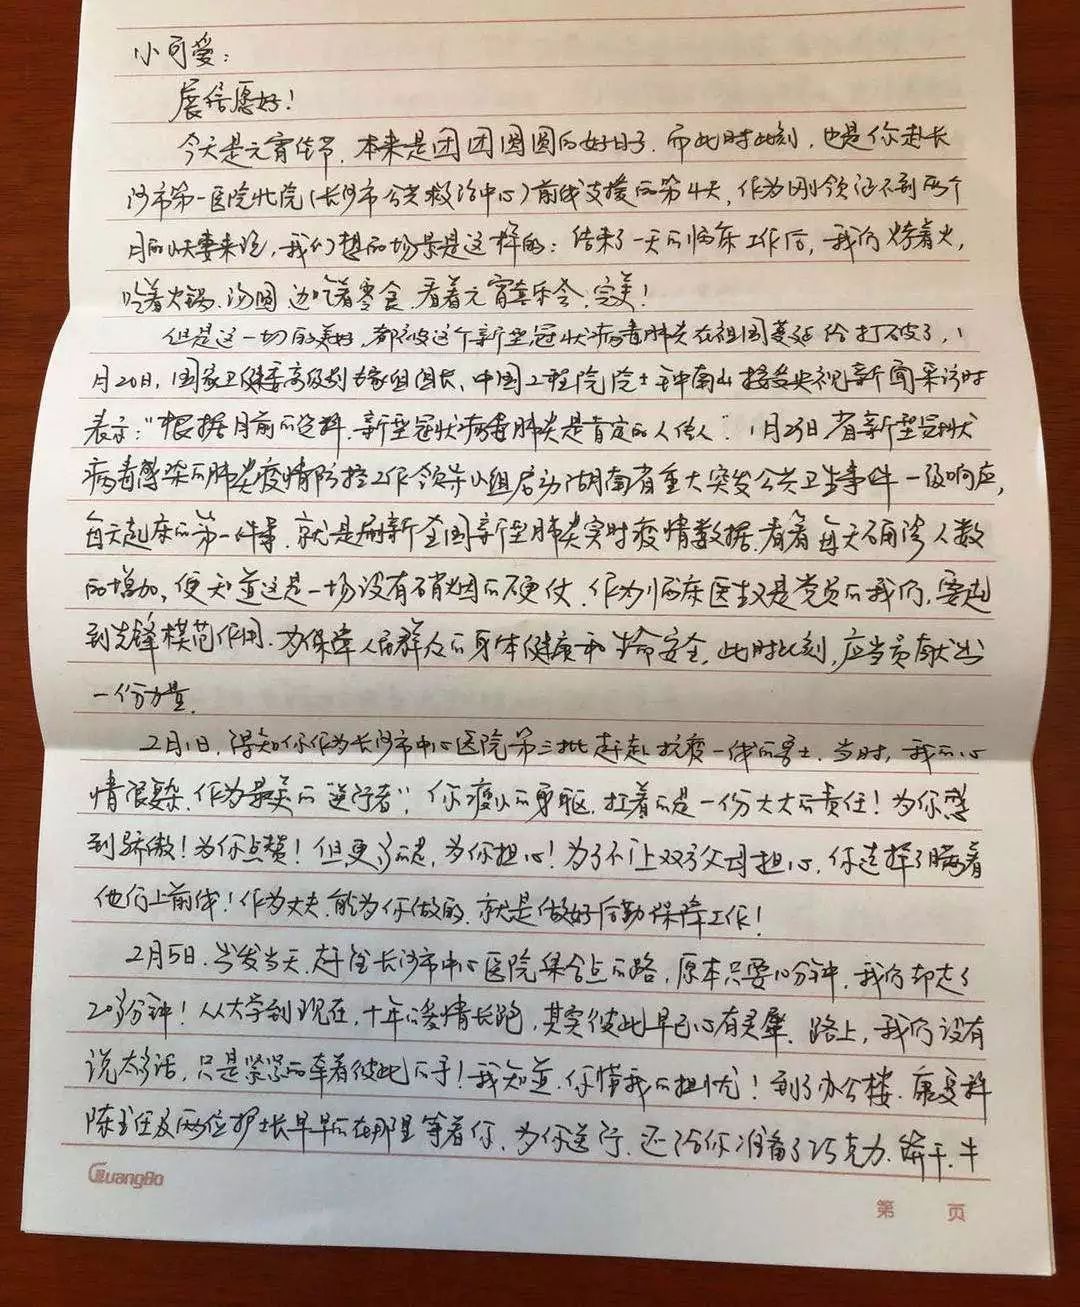 小可爱：
展信愿好！
今天是元宵佳节，本来是团团圆圆的好日子，而此时此刻，也是你赴长
沙市第一医院北院（长沙市公共救治中心）前线支援的第4天，作为刚领证不到两个
月的夫妻来说，我们想的场景是这样的：结束了一天的临床工作后，我们烤着火，
吃着火锅、汤圆，边吃着零食，看着元宵喜乐会，完美！
但是这一切的美好，都被这个新型冠状病毒肺炎在祖国蔓延给打破了，1
月20日，国家卫健委高级别专家组组长、中国工程院院士钟南山接受央视新闻采访时
表示：“根据目前的资料，新型冠状病毒肺炎是肯定的人传人”。1月23日省新型冠状
病毒感染的肺炎疫情防控工作领导小组启动湖南省重大突发公共卫生事件一级响应，
每天起床的第一件事，就是刷新全国新型肺炎实时疫情数据，看着每天确诊人数
的增加，便知道这是一场没有硝烟的硬仗，作为临床医生又是党员的我们，要起
到先锋模范作用，为保障人民群众的身体健康和生命安全，此时此刻，应当贡献出
一份力量。
2月1日，得知你作为长沙市中心医院第三批赶赴抗疫一线的勇士，当时，我的心
情很复杂，作为最美的“逆行者”，你瘦小的身躯，扛着的是一份大大的责任！为你感
到骄傲！为你点赞！但更多的是，为你担心！为了不让双方父母担心，你选择了瞒着
他们上前线！作为丈夫，能为你做的，就是做好后勤保障工作！
2月5日，出发当天，赶往长沙市中心医院集合点的路，原本只要10分钟，我们却走了
20多分钟！从大学到现在，十年的爱情长跑，其实彼此早已心有灵犀，路上，我们没有
说太多话，只是紧紧的牵着彼此的手！我知道，你懂我的担忧！到了办公楼，康复科
陈主任及两位护士长早早的在那里等着你，为你送行，还给你准备了巧克力、饼干、牛
GuangBo
第 页